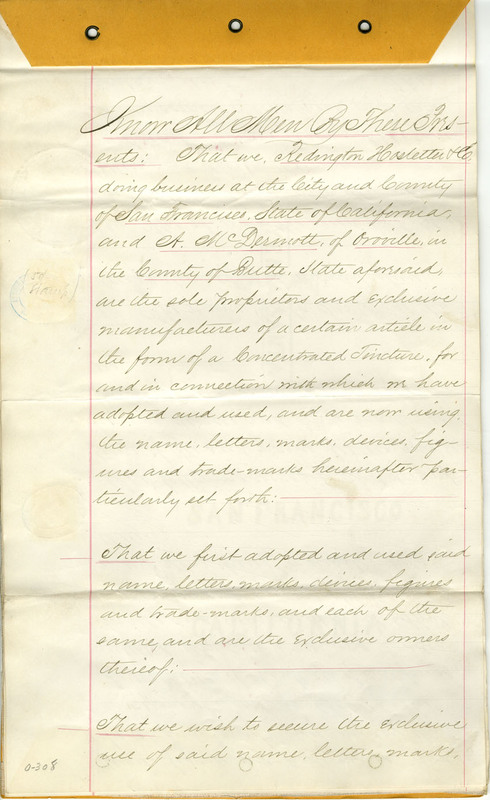 Know All Men By These Pres-
ents: That we, Redington Hostetter & Co.
doing business at the City and County
of San Francisco, State of California,
and A. McDermott, of Oroville, in
the County of Butte, State aforesaid,
are the sole proprietors and exclusive
manufacturers of a certain article in
the form of a Concentrated Tincture, for
and in connection with which we have
adopted and used, and are now using
the name, letters, marks, devices, fig-
ures and trade-marks hereinafter par-
ticularly set forth:
That we first adopted and used said
name, letters, marks, devices, figures
and trade-marks, and each of the
same, and are the exclusive owners
thereof;
That we wish to secure the exclusive
use of said name, letters, marks,
0-308